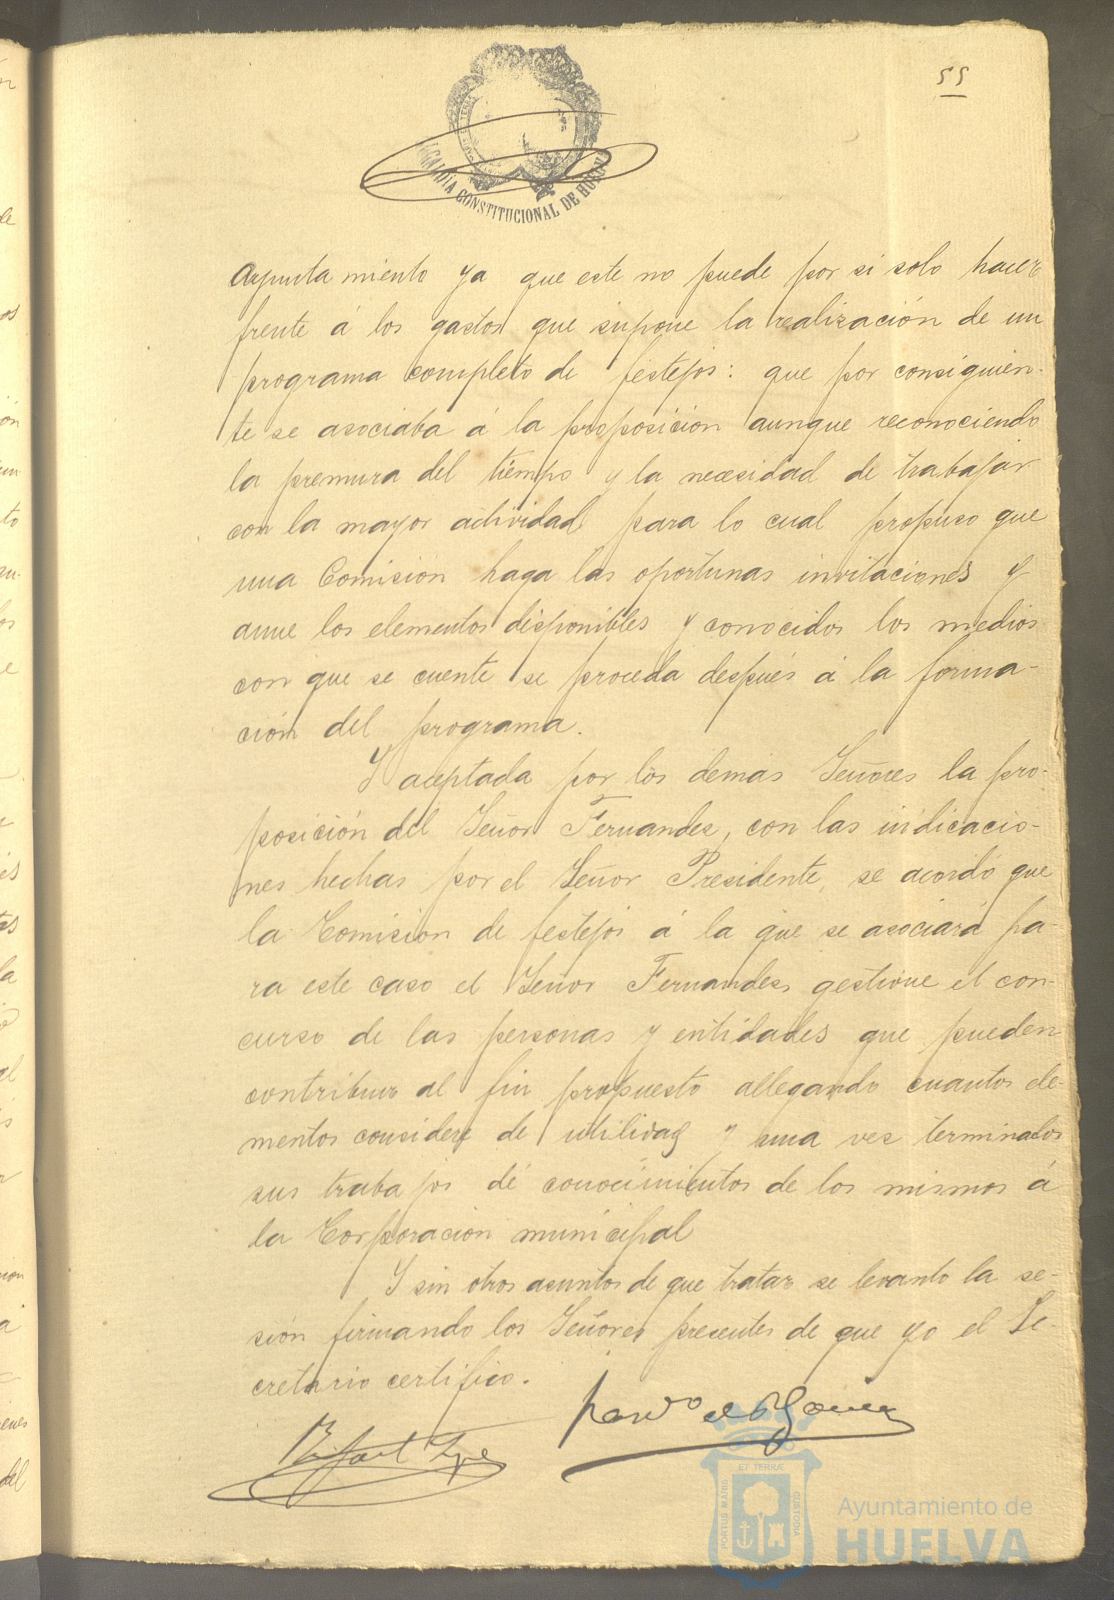 55
ALCALDIA CONSTITUCIONAL DE HUELVA
Ayuntamiento ya que este no puede por si solo hacer
frente á los gastos que supone la realización de un
programa completo de festejos: que por consiguien-
te se asociaba á la proposición aunque reconociendo
la premura del tiempo y la necesidad de trabajar
con la mayor actividad para lo cual propuso que
una Comisión haga las oportunas invitaciones y
aune los elementos disponibles y conocidos los medios
con que se cuente se proceda después á la forma-
ción del programa.
Y aceptada por los demas Señores la pro-
posición del Señor Fernandez, con las indicacio-
nes hechas por el Señor Presidente, se acordó que
la Comision de festejos á la que se asociará pa-
ra este caso el Señor Fernandez gestione el con-
curso de las personas y entidades que pueden
contribuir al fin propuesto allegando cuantos ele-
mentos considere de utilidad y una vez terminados
sus trabajos dé conocimientos de los mismos á
la Corporación municipal
Y sin otros asuntos de que tratar se levantó la se-
sión firmando los Señores presentes de que yo el Se-
cretario certifico.
Rafael
PORTUS MARIS ET TERRÆ CUSTODIA
Ayuntamiento de
HUELVA